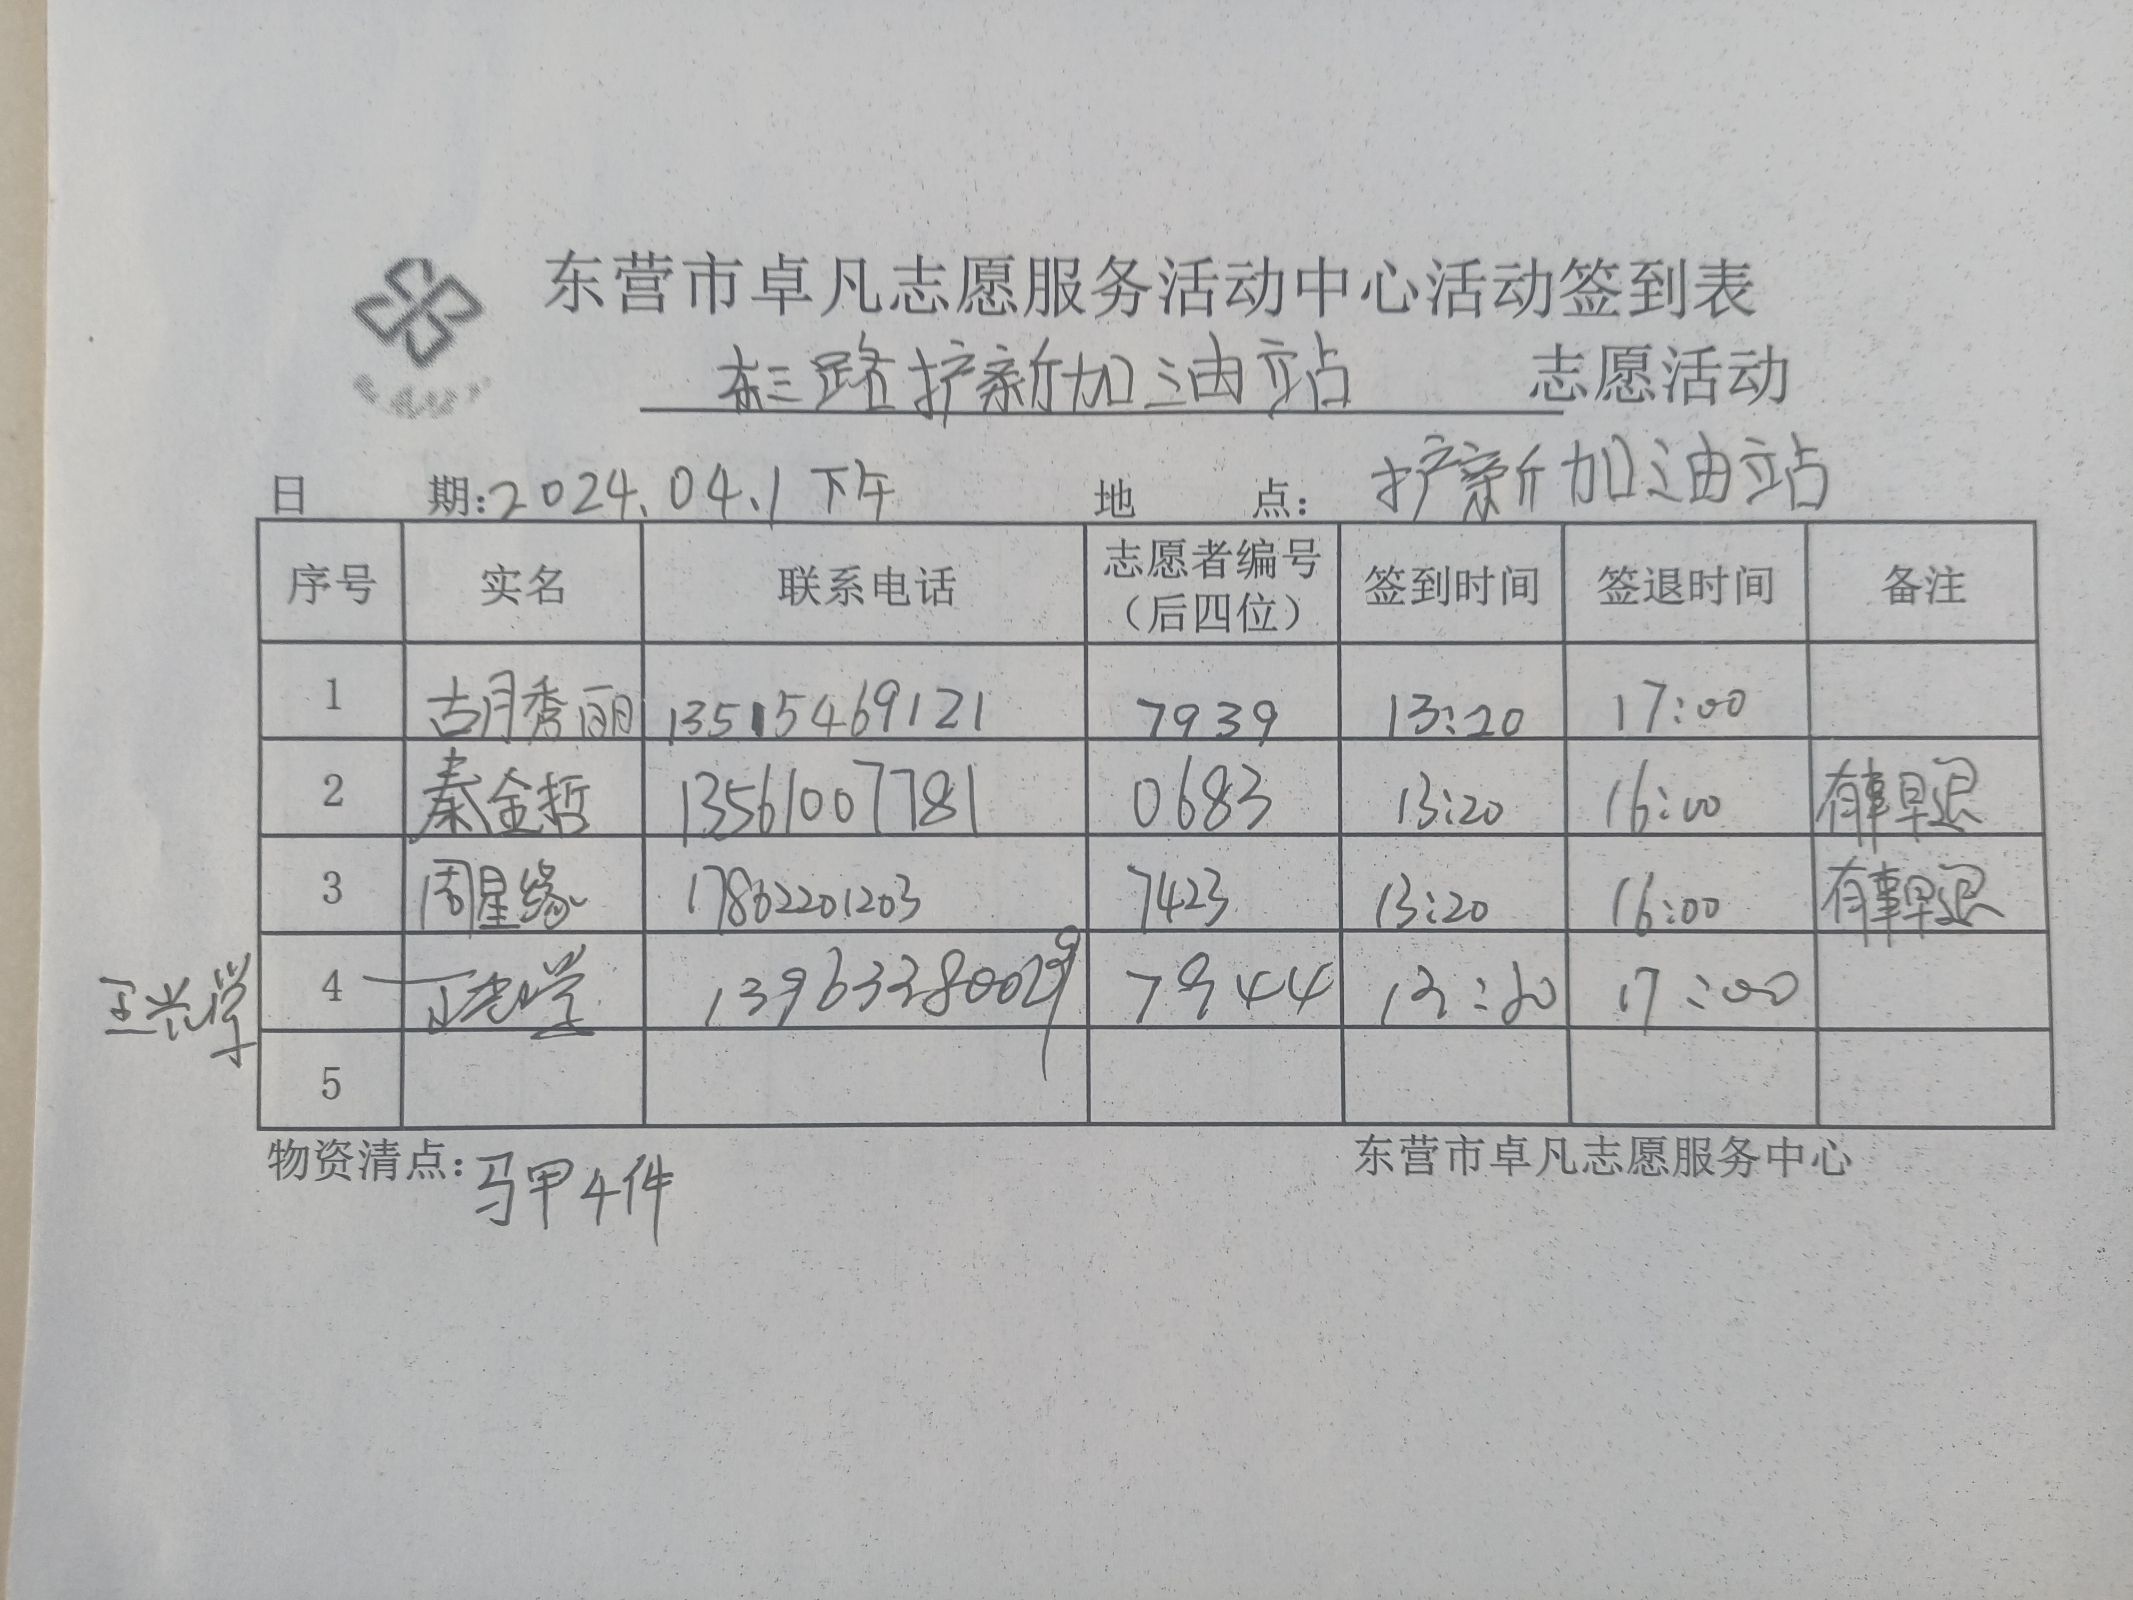 东营市卓凡志愿服务活动中心活动签到表
东三路护新加油站 志愿活动
日 期: 2024.04.1 下午 地 点: 护新加油站
序号 实名 联系电话 志愿者编号（后四位） 签到时间 签退时间 备注
1 胡秀丽 13515469121 7939 13:20 17:00
2 秦金哲 13561007781 0683 13:20 16:00 有事早退
3 周星缘 17862201203 7423 13:20 16:00 有事早退
王兴学 4 7944 17:00
5
物资清点: 马甲4件 东营市卓凡志愿服务中心